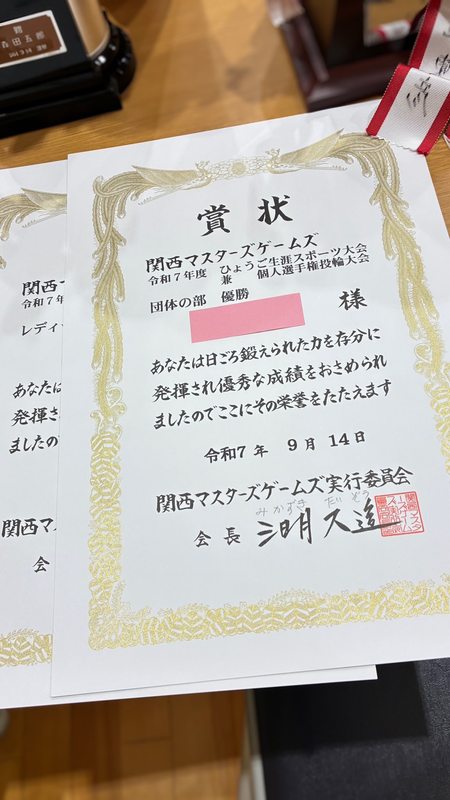 賞状
関西マスターズゲームズ
令和7年度 ひょうご生涯スポーツ大会
兼 個人選手権投輪大会
団体の部 優勝
様
あなたは日ごろ鍛えられた力を存分に
発揮され優秀な成績をおさめられ
ましたのでここにその栄誉をたたえます
令和7年 9月 14日
関西マスターズゲームズ実行委員会
みかずき だいぞう
会長 三日月大造
関西マ
令和7年
レディ
あなたは
発揮さ
ましたの
関西マス
会